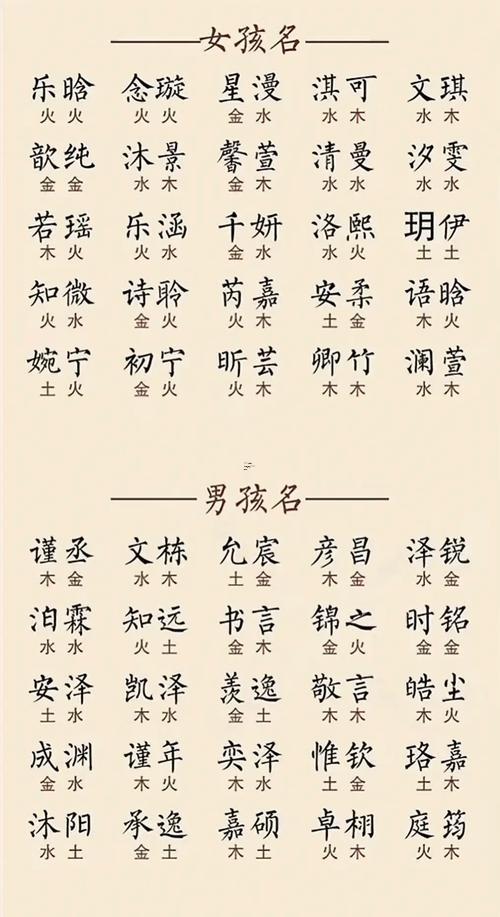 女孩名
乐晗 念璇 星漫 淇可 文琪
火火 火火 金水 水木 水木
歆纯 沐景 馨萱 清曼 汐雯
金金 水木 金木 水水 水水
若瑶 乐涵 千妍 洛熙 玥伊
木火 火水 金水 水火 土土
知微 诗聆 芮嘉 安柔 语晗
火水 金火 火木 土金 木火
婉宁 初宁 昕芸 卿竹 澜萱
土火 金火 火木 木木 水木
男孩名
谨丞 文栋 允宸 彦昌 泽锐
木金 水木 土金 木金 水金
泊霖 知远 书言 锦之 时铭
水水 火土 金木 金火 金金
安泽 凯泽 羡逸 敬言 皓尘
土水 木水 金土 木木 木火
成渊 谨年 奕泽 惟钦 珞嘉
金水 木火 木水 土金 火木
沐阳 承逸 嘉硕 卓栩 庭筠
水土 金土 木土 火木 火木